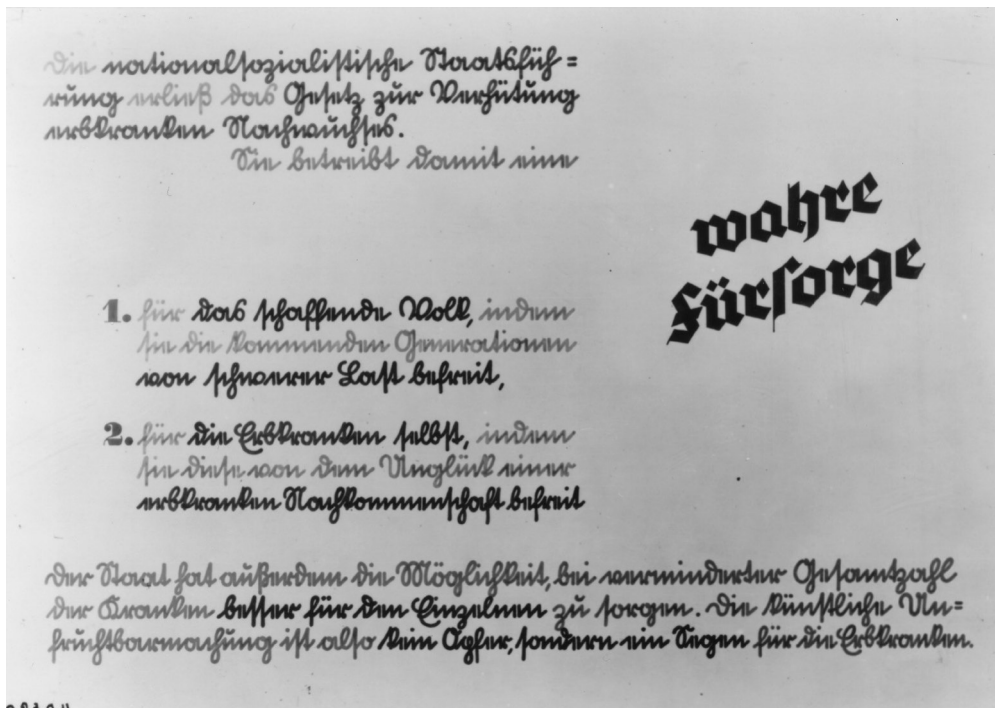 Die nationalsozialistische Staatsfüh=
rung erließ das Gesetz zur Verhütung
erbkranken Nachwuchses.
Sie betreibt damit eine
wahre
Fürsorge
1. für das schaffende Volk, indem
sie die kommenden Generationen
von schwerer Last befreit,
2. für die Erbkranken selbst, indem
sie diese von dem Unglück einer
erbkranken Nachkommenschaft befreit
Der Staat hat außerdem die Möglichkeit, bei verminderter Gesamtzahl
der Kranken besser für den Einzelnen zu sorgen. Die künstliche Un=
fruchtbarmachung ist also kein Opfer, sondern ein Segen für die Erbkranken.